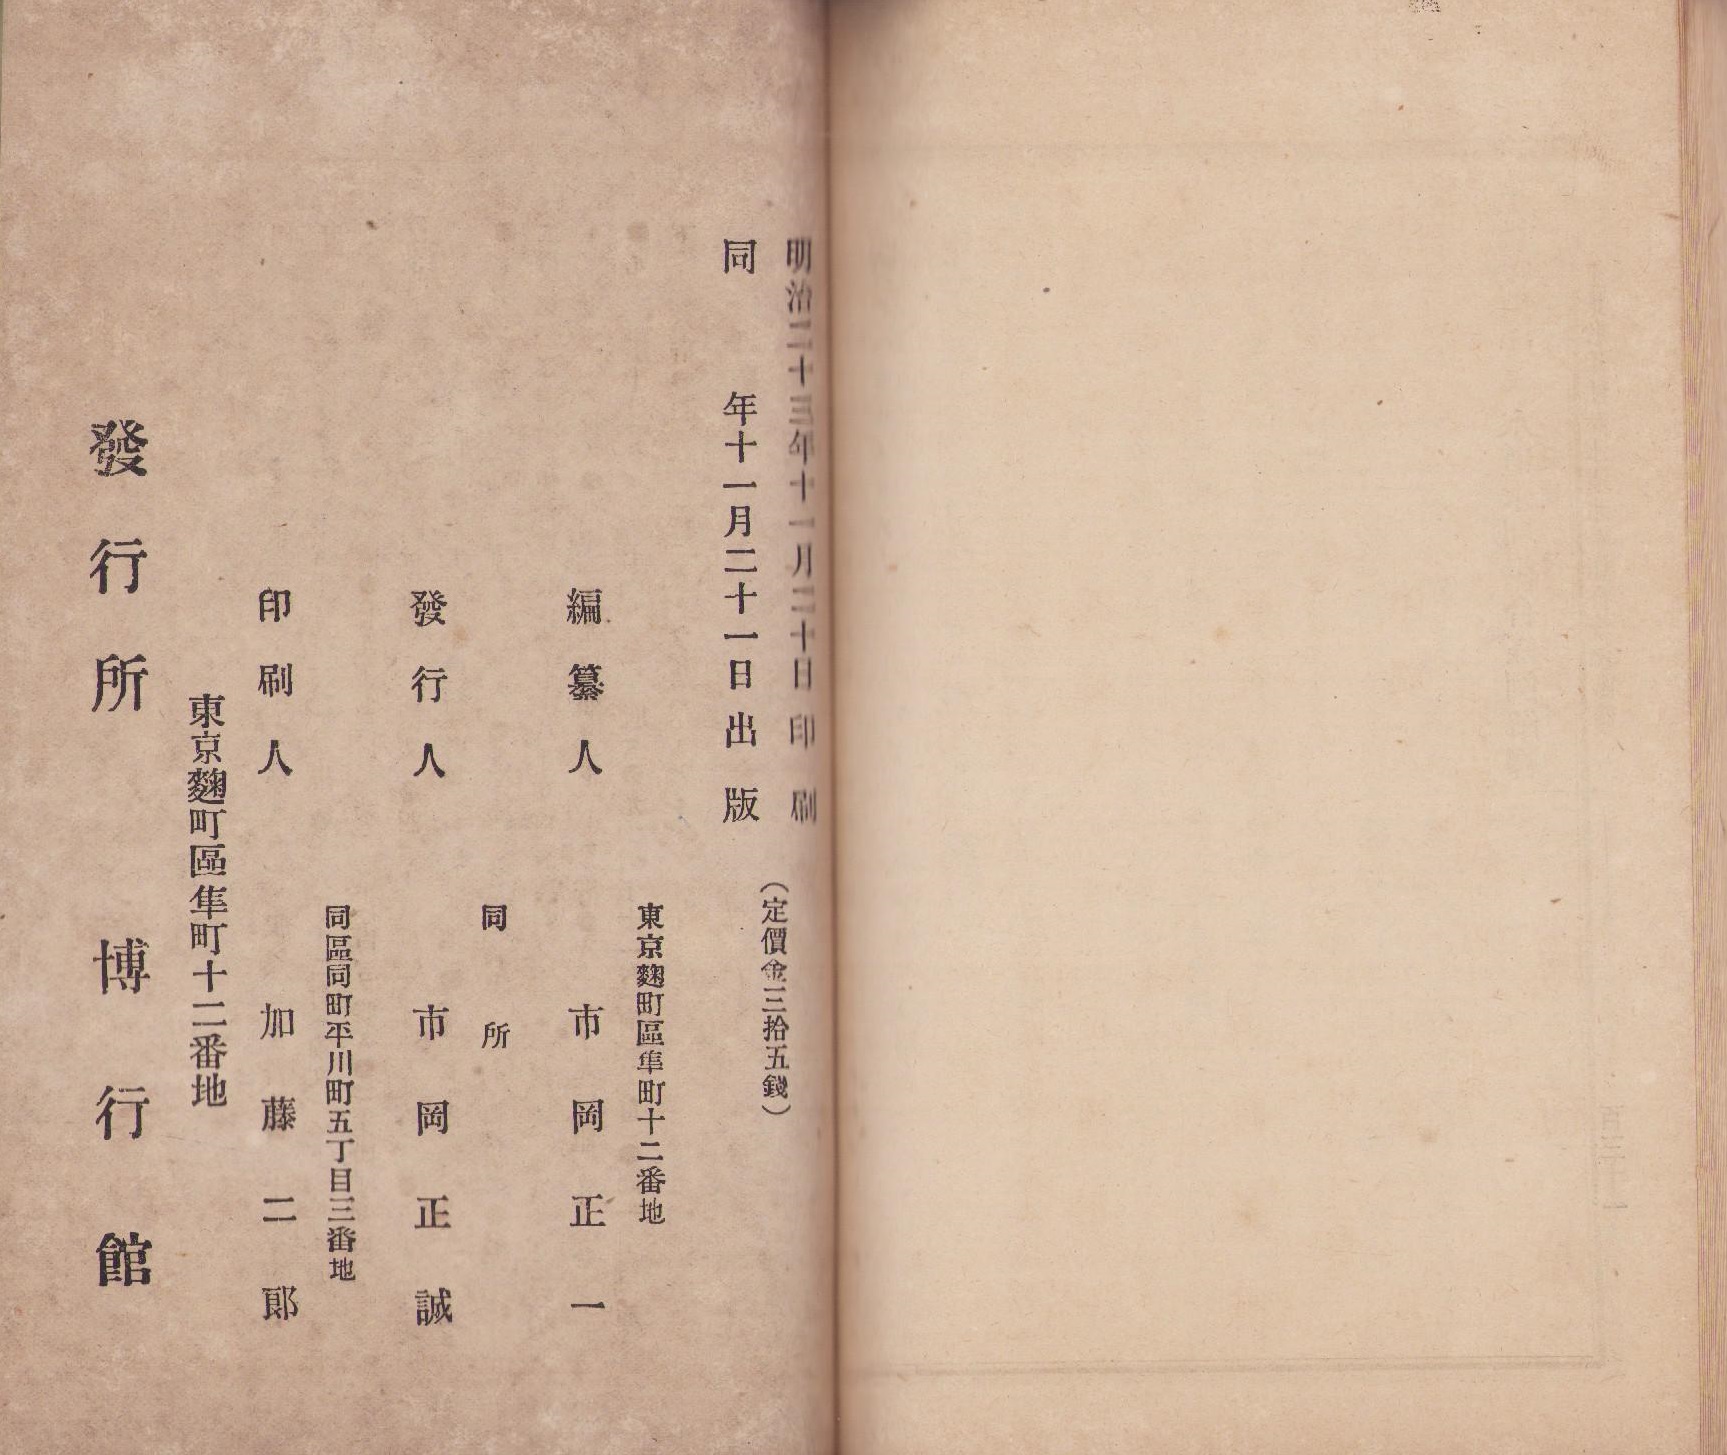 明治二十三年十一月二十日印刷
同年十一月二十一日出版
(定價金三拾五錢)
東京麴町區隼町十二番地
編纂人 市岡正一
同所
發行人 市岡正誠
同區同町平川町五丁目三番地
印刷人 加藤二郞
東京麴町區隼町十二番地
發行所 博行館